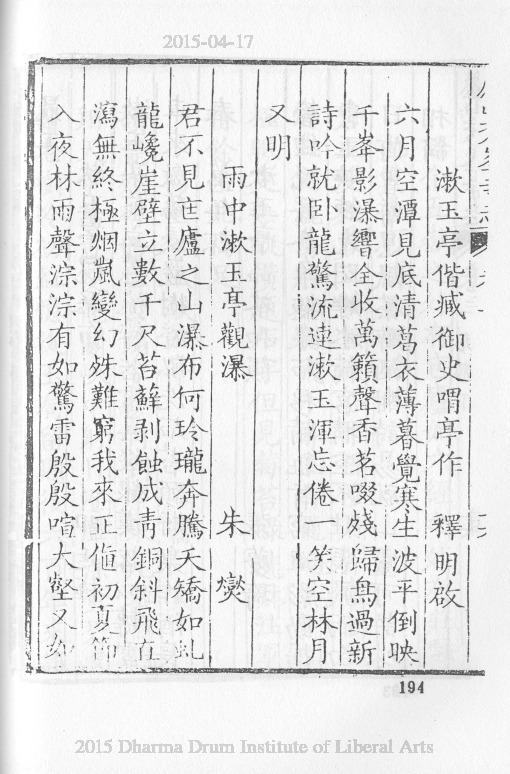 2015-04-17
漱玉亭偕臧御史喟亭作 釋明啟
六月空潭見底清葛衣薄暮覺寒生波平倒映
千峯影瀑響全收萬籟聲香茗啜殘歸鳥過新
詩吟就卧龍驚流連漱玉渾忘倦一笑空林月
又明
雨中漱玉亭觀瀑 朱爕
君不見匡廬之山瀑布何玲瓏奔騰夭矯如虬
龍巉崖壁立數千尺苔蘚剥蝕成青銅斜飛直
瀉無終極烟嵐變幻殊難窮我來正值初夏節
入夜林雨聲淙淙有如驚雷殷殷喧大壑又如
194
2015 Dharma Drum Institute of Liberal Arts